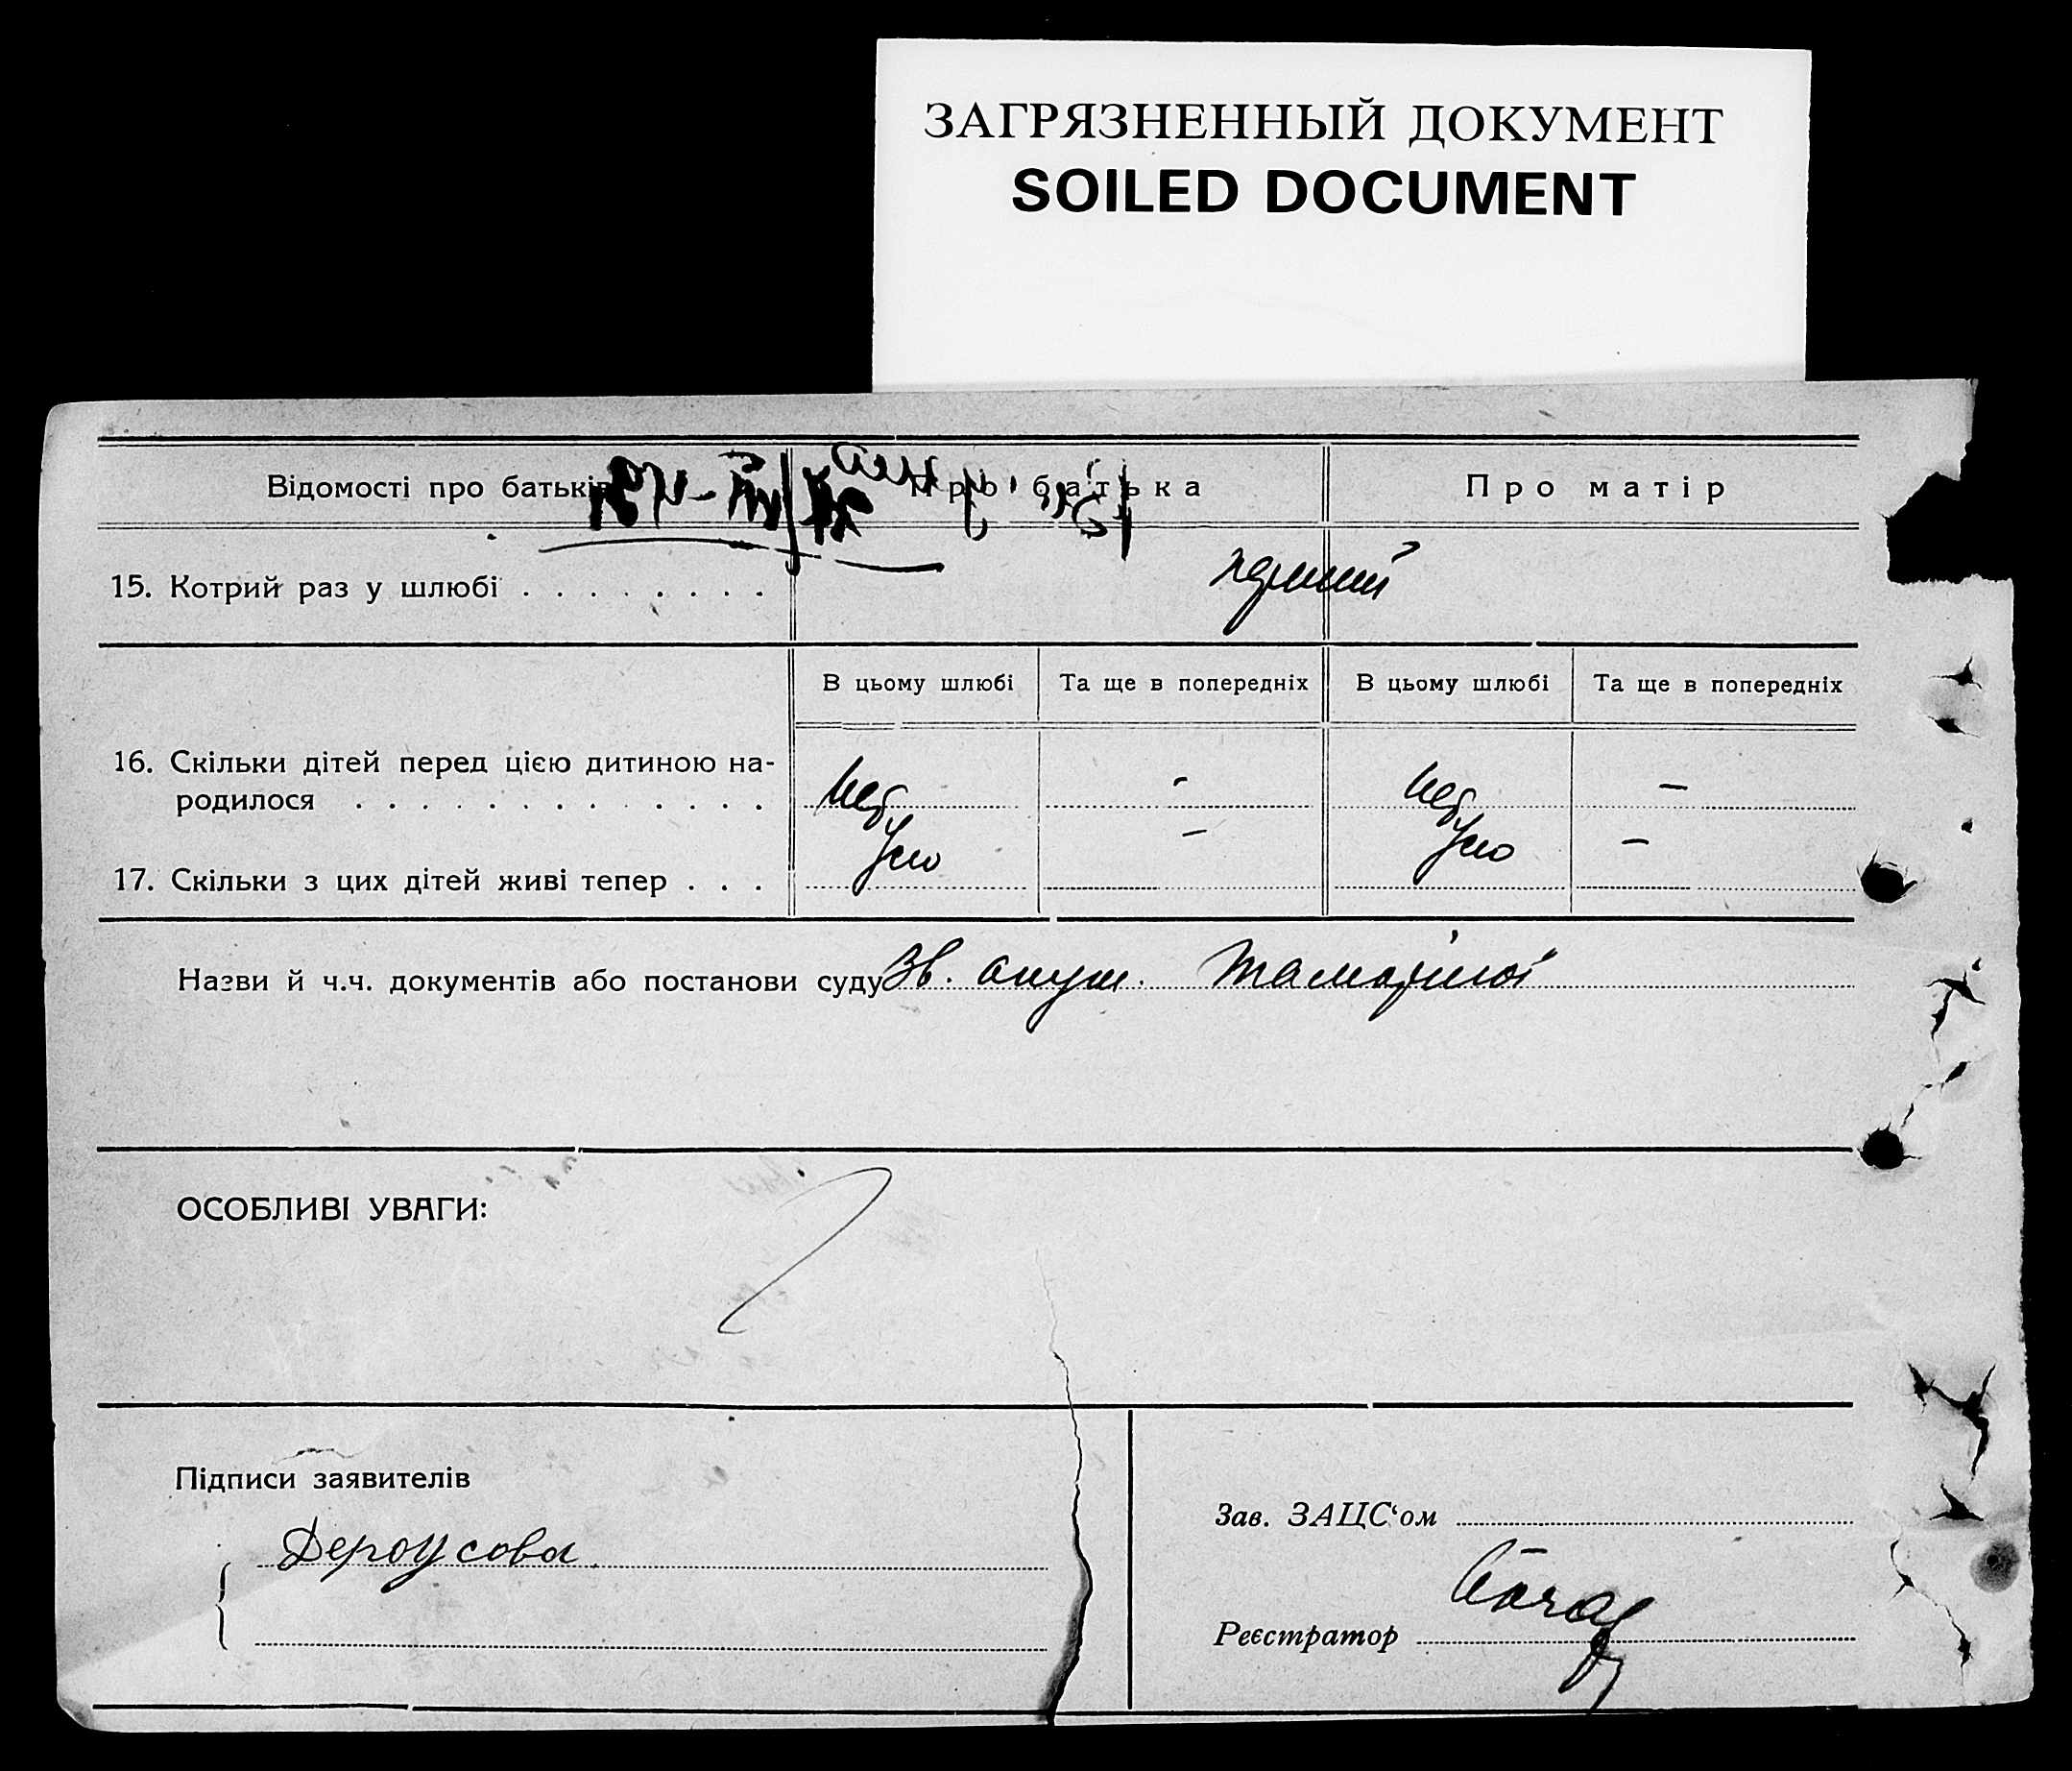 ЗАГРЯЗНЕННЫЙ ДОКУМЕНТ
SOILED DOCUMENT
Відомості про батьків Про батька Про матір
15. Котрий раз у шлюбі . . . . . . . .
В цьому шлюбі Та ще в попередніх В цьому шлюбі Та ще в попередніх
16. Скільки дітей перед цією дитиною на-
родилося . . . . . . . . . . . . . - –
17. Скільки з цих дітей живі тепер . . . – –
Назви й ч.ч. документів або постанови суду Зв. акуш.
ОСОБЛИВІ УВАГИ:
Підписи заявителів
Зав. ЗАЦС‘ом
Дероусова
Реєстратор